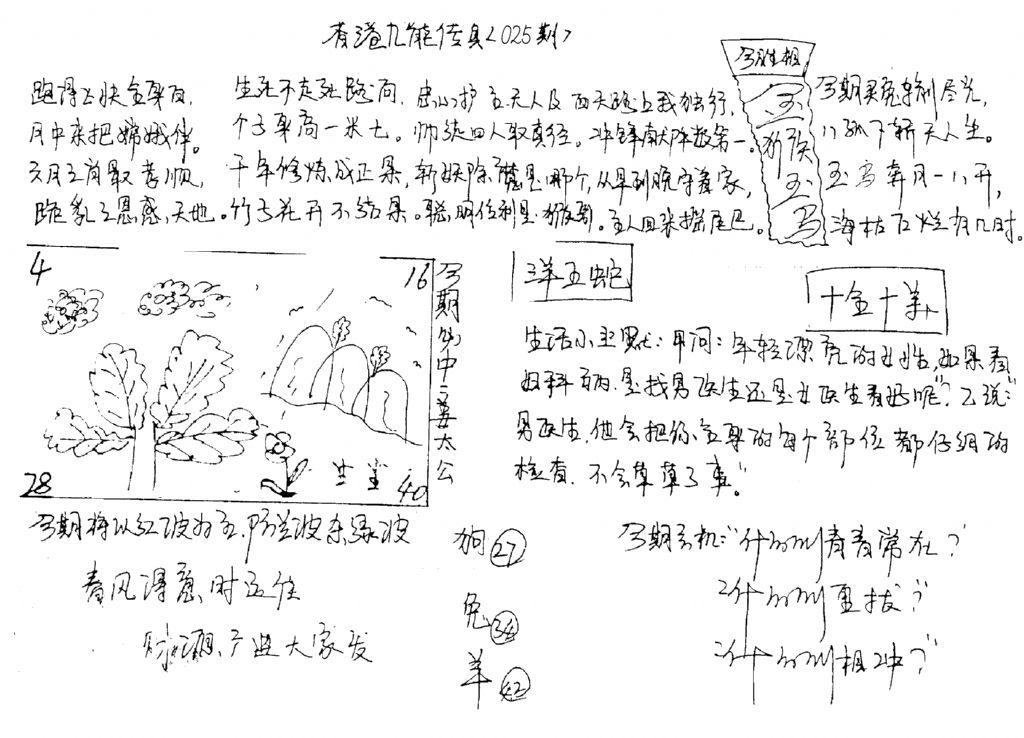 香港九龍传真<025期>
今生肖相
跑得飞快全身白,
月中来把嫦娥伴。
三月三肖最孝顺,
跪乳之恩感天地。
生死不走死路问,
个子身高一米七。
千年修炼成正果,
竹子花开不结果。
忠心护主天人及
西天路上我独行,
师徒四人取真经。
冲锋献阵数第一。
斩妖除魔是哪个,
从早到晚守着家,
聪明伶利是猴哥。
主人回来摇尾巴。
玉
猴
玉
马
今期买兔輸利尽光,
八 下 天人生。
玉马奔月一八开,
海枯石烂有几时。
4
16
28
40
今期必中三姜太公
洋五蛇
十全十羊
生活小幽默:甲问:年轻漂亮的女性,如果看
妇科病,是找男医生还是女医生看好呢"?乙说:"
男医生,他会把你全身的每个部位都仔细的
检查,不会草草了事。"
今期将以红波为主,防蓝波杀绿波
春风得意时运佳
财源广进大家发
狗 27
兔 34
羊 42
今期玄机:"什么青春常在?
2什么 更拔?
3什么 相冲?"